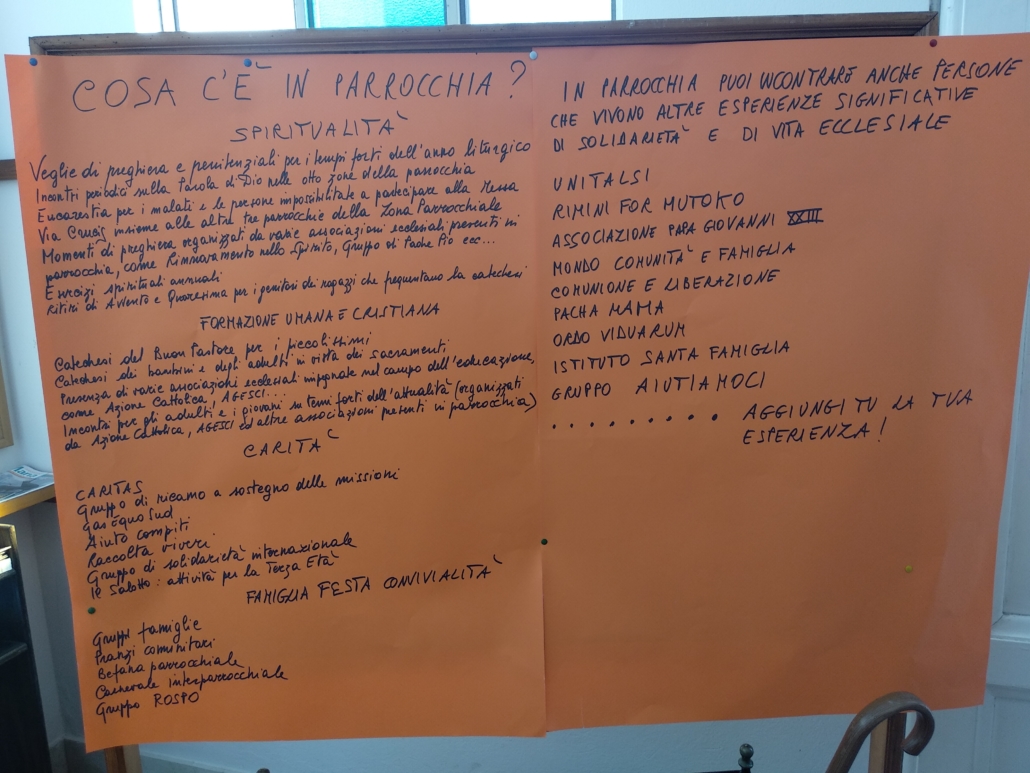 COSA C'È IN PARROCCHIA?
SPIRITUALITÀ
Veglie di preghiera e penitenziali per i tempi forti dell'anno liturgico
Incontri periodici sulla Parola di Dio nelle otto zone della parrocchia
Eucarestia per i malati e le persone impossibilitate a partecipare alla Messa
Via Crucis insieme alle altre tre parrocchie della Zona Parrocchiale
Momenti di preghiera organizzati da varie associazioni ecclesiali presenti in
parrocchia, come Rinnovamento nello Spirito, Gruppo di Padre Pio ecc...
Esercizi spirituali annuali
Ritiri di Avvento e Quaresima per i genitori dei ragazzi che frequentano la catechesi
FORMAZIONE UMANA E CRISTIANA
Catechesi del Buon Pastore per i piccolissimi
Catechesi dei bambini e degli adulti in vista dei sacramenti
Presenza di varie associazioni ecclesiali impegnate nel campo dell'educazione,
come Azione Cattolica, AGESCI...
Incontri per gli adulti e i giovani su temi forti dell'attualità (organizzati
da Azione Cattolica, AGESCI ed altre associazioni presenti in parrocchia)
CARITÀ
CARITAS
Gruppo di ricamo a sostegno delle missioni
Gas Equo Sud
Aiuto compiti
Raccolta viveri
Gruppo di solidarietà internazionale
Il Salotto: attività per la Terza Età
FAMIGLIA FESTA CONVIVIALITÀ
Gruppi famiglie
Pranzi comunitari
Befana parrocchiale
Carnevale interparrocchiale
Gruppo ROSPO
IN PARROCCHIA PUOI INCONTRARE ANCHE PERSONE
CHE VIVONO ALTRE ESPERIENZE SIGNIFICATIVE
DI SOLIDARIETÀ E DI VITA ECCLESIALE
UNITALSI
RIMINI FOR MUTOKO
ASSOCIAZIONE PAPA GIOVANNI XXIII
MONDO COMUNITÀ E FAMIGLIA
COMUNIONE E LIBERAZIONE
PACHA MAMA
ORDO VIDUARUM
ISTITUTO SANTA FAMIGLIA
GRUPPO AIUTIAMOCI
......... AGGIUNGI TU LA TUA
ESPERIENZA!